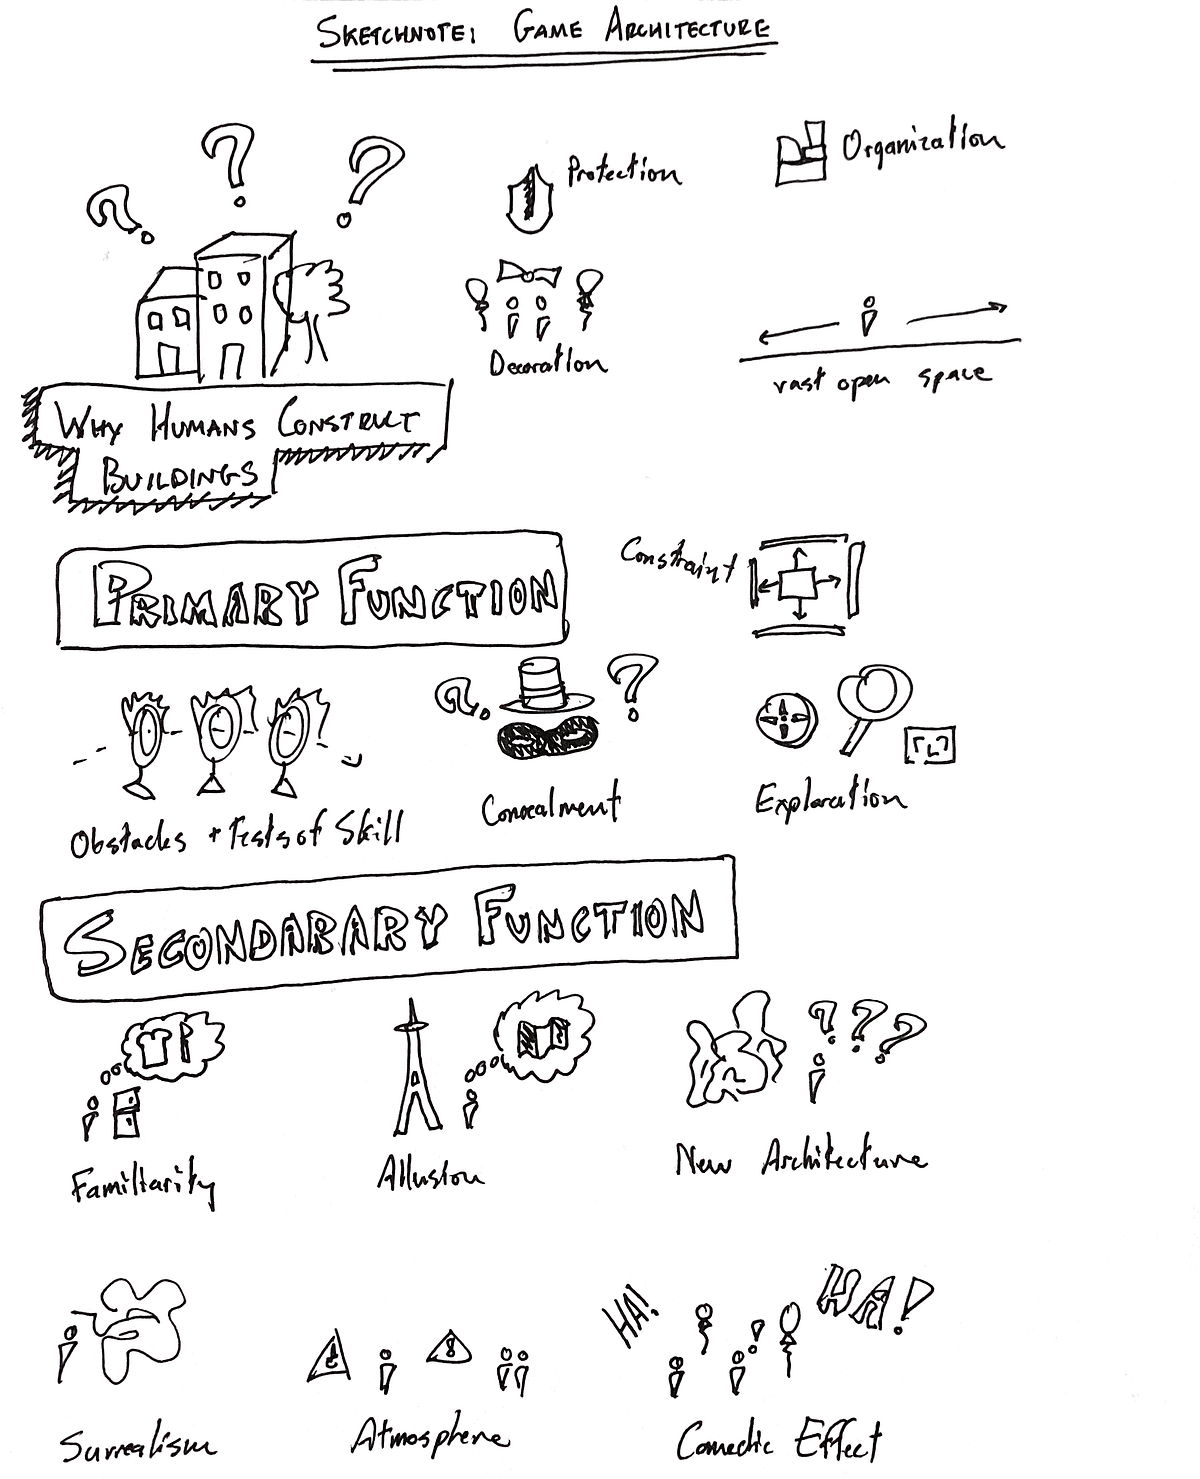 SKETCHNOTE: GAME ARCHITECTURE
Protection
Organization
Decoration
vast open space
WHY HUMANS CONSTRUCT
BUILDINGS
PRIMARY FUNCTION
Constraint
Obstacles + Tests of Skill
Concealment
Exploration
SECONDARARY FUNCTION
Familiarity
Allusion
New Architecture
HA!
HA!
Surrealism
Atmosphere
Comedic Effect